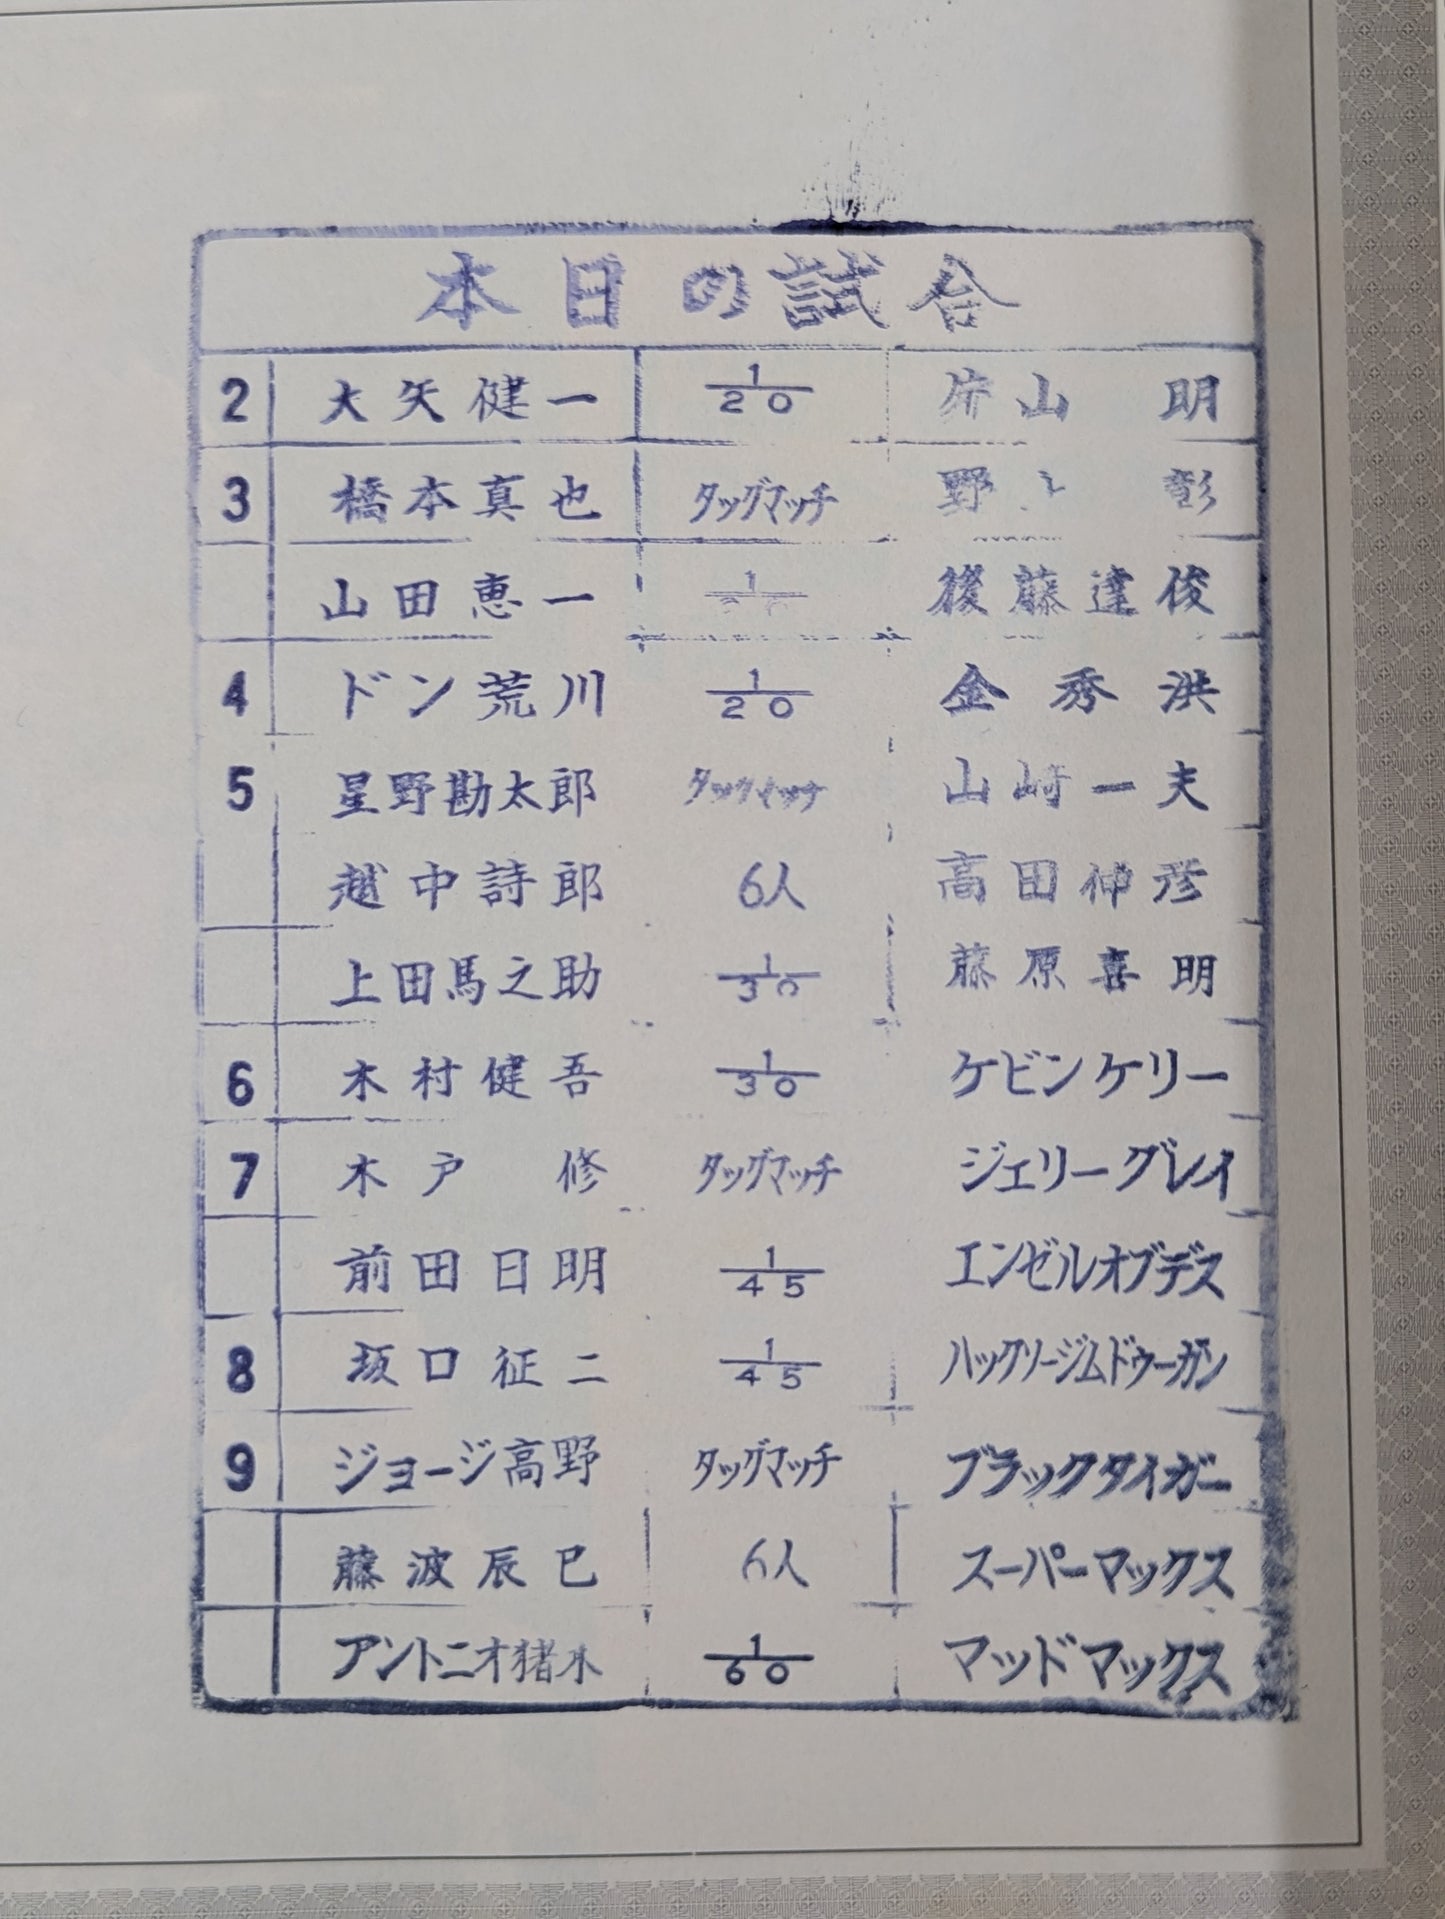 本日の試合
2 大矢健一 1/20 片山明
3 橋本真也 タッグマッチ 野 彰
山田恵一 1/20 後藤達俊
4 ドン荒川 1/20 金秀洪
5 星野勘太郎 タッグマッチ 山崎一夫
越中詩郎 6人 高田伸彦
上田馬之助 1/30 藤原喜明
6 木村健吾 1/30 ケビンケリー
7 木戸修 タッグマッチ ジェリーグレイ
前田日明 1/45 エンゼルオブデス
8 坂口征二 1/45 ハックソージムドゥーガン
9 ジョージ高野 タッグマッチ ブラックタイガー
藤波辰巳 6人 スーパーマックス
アントニオ猪木 1/60 マッドマックス